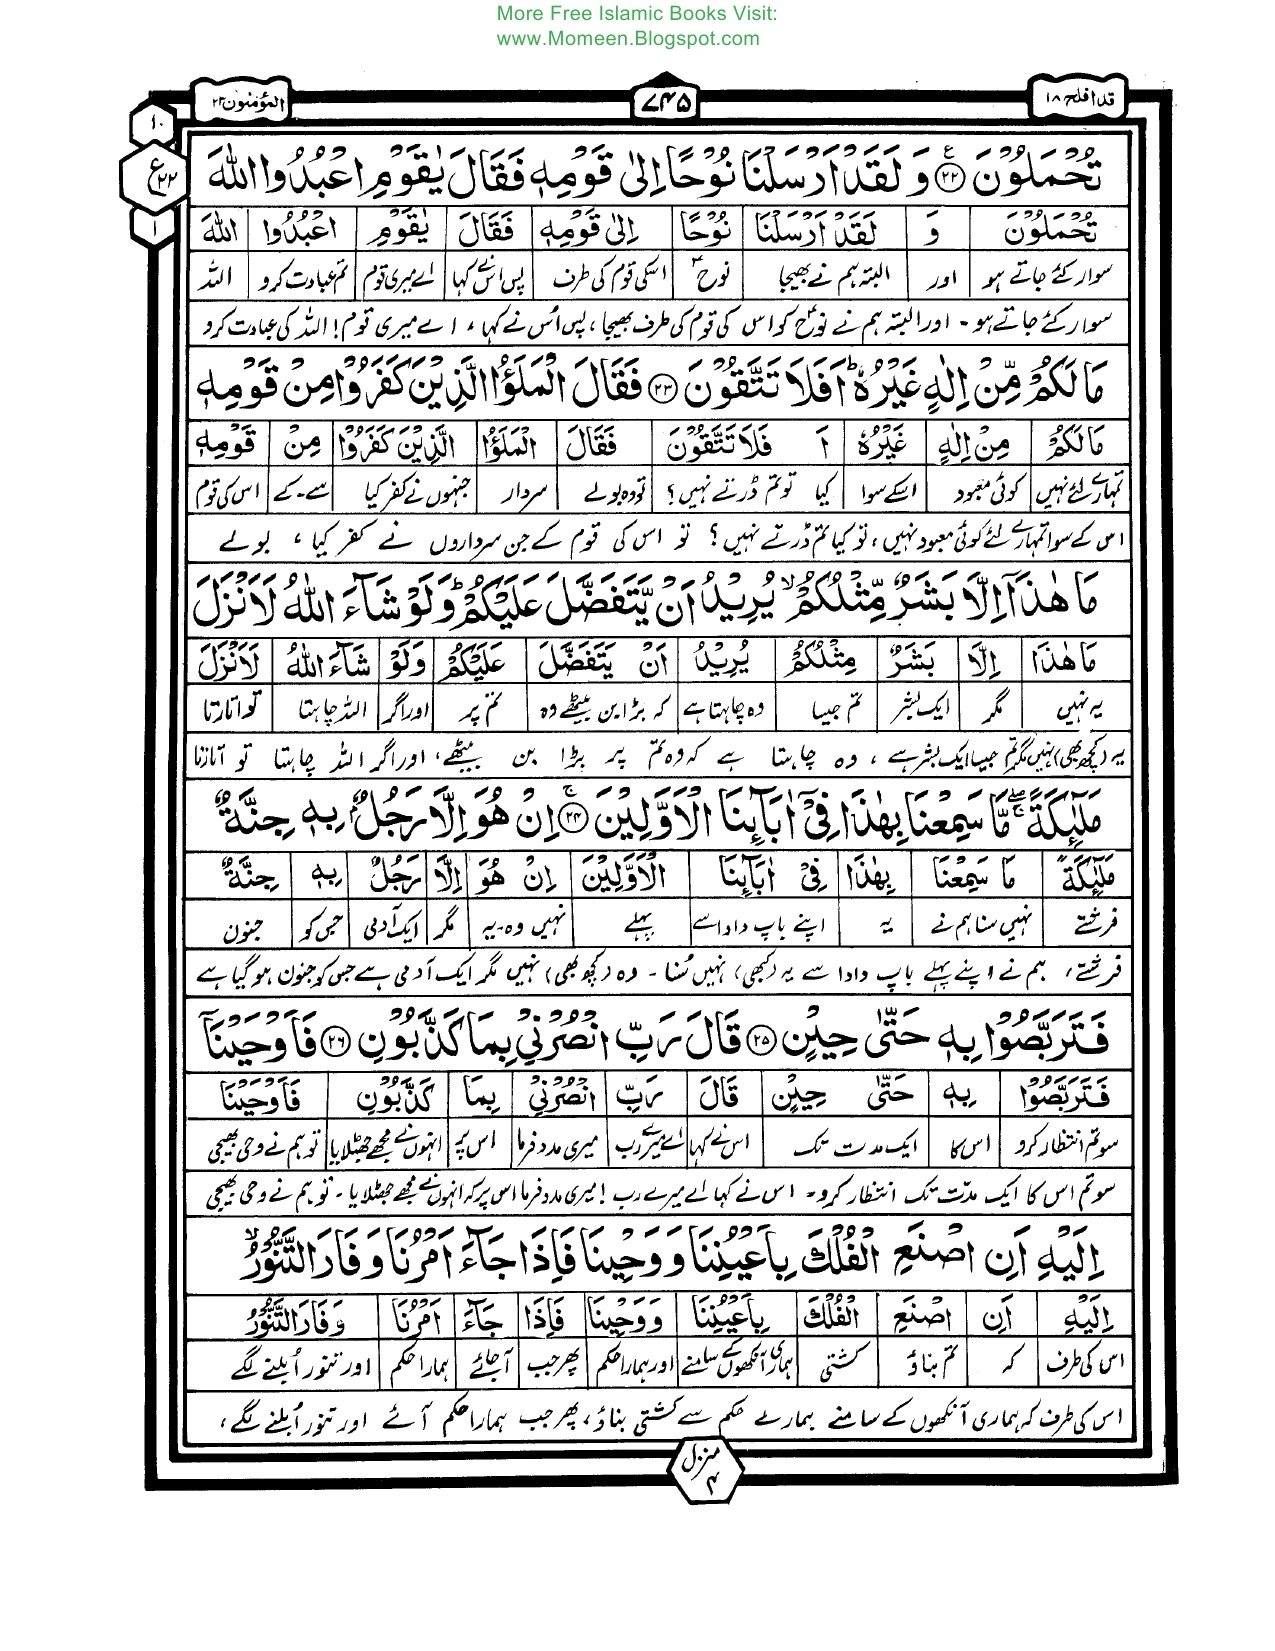 More Free Islamic Books Visit:
www.Momeen.Blogspot.com
قد افلح ۱۸
۷۴۵
المؤمنون ۲۳
۱۰
ع ۲۲
۱
تُحْمَلُوْنَ ﴿۲۲﴾ وَ لَقَدْ اَرْسَلْنَا نُوْحًا اِلٰى قَوْمِهٖ فَقَالَ يٰقَوْمِ اعْبُدُوا اللّٰهَ
تُحْمَلُوْنَ وَ لَقَدْ اَرْسَلْنَا نُوْحًا اِلٰى قَوْمِهٖ فَقَالَ يٰقَوْمِ اعْبُدُوا اللّٰهَ
سوار کئے جاتے ہو اور البتہ ہم نے بھیجا نوحؑ اسکی قوم کی طرف پس اس نے کہا اے میری قوم تم عبادت کرو اللہ
سوار کئے جاتے ہو ۔ اور البتہ ہم نے نوحؑ کو اس کی قوم کی طرف بھیجا ، پس اُس نے کہا ، اے میری قوم ! اللہ کی عبادت کرو
مَا لَكُمْ مِّنْ اِلٰهٍ غَيْرُهٗ ؕ اَفَلَا تَتَّقُوْنَ ﴿۲۳﴾ فَقَالَ الْمَلَؤُا الَّذِيْنَ كَفَرُوْا مِنْ قَوْمِهٖ
مَا لَكُمْ مِنْ اِلٰهٍ غَيْرُهٗ اَ فَلَا تَتَّقُوْنَ فَقَالَ الْمَلَؤُا الَّذِيْنَ كَفَرُوْا مِنْ قَوْمِهٖ
تمہارے لئے نہیں کوئی معبود اسکے سوا کیا تو تم ڈرتے نہیں؟ تو وہ بولے سردار جنہوں نے کفر کیا سے۔کے اس کی قوم
اس کے سوا تمہارے لئے کوئی معبود نہیں ، تو کیا تم ڈرتے نہیں ؟ تو اس کی قوم کے جن سرداروں نے کفر کیا ، بولے
مَا هٰذَاۤ اِلَّا بَشَرٌ مِّثْلُكُمْ ۙ يُرِيْدُ اَنْ يَّتَفَضَّلَ عَلَيْكُمْ ؕ وَلَوْ شَآءَ اللّٰهُ لَاَنْزَلَ
مَا هٰذَا اِلَّا بَشَرٌ مِثْلُكُمْ يُرِيْدُ اَنْ يَّتَفَضَّلَ عَلَيْكُمْ وَلَوْ شَآءَ اللّٰهُ لَاَنْزَلَ
یہ نہیں مگر ایک بشر تم جیسا وہ چاہتا ہے کہ بڑا بن بیٹھے وہ تم پر اور اگر اللہ چاہتا تو اتارتا
یہ (کچھ بھی) نہیں مگر تم جیسا ایک بشر ہے ، وہ چاہتا ہے کہ وہ تم پر بڑا بن بیٹھے ، اور اگر اللہ چاہتا تو اتارتا
مَلٰٓئِكَةً ۚۖ مَّا سَمِعْنَا بِهٰذَا فِيْۤ اٰبَآئِنَا الْاَوَّلِيْنَ ﴿۲۴﴾ اِنْ هُوَ اِلَّا رَجُلٌۢ بِهٖ جِنَّةٌ
مَلٰٓئِكَةً مَا سَمِعْنَا بِهٰذَا فِيْۤ اٰبَآئِنَا الْاَوَّلِيْنَ اِنْ هُوَ اِلَّا رَجُلٌ بِهٖ جِنَّةٌ
فرشتے نہیں سنا ہم نے یہ اپنے باپ دادا سے پہلے نہیں وہ۔یہ مگر ایک آدمی جس کو جنون
فرشتے ، ہم نے اپنے پہلے باپ دادا سے یہ (کبھی) نہیں سُنا ۔ وہ (کچھ بھی) نہیں مگر ایک آدمی ہے جس کو جنون ہو گیا ہے
فَتَرَبَّصُوْا بِهٖ حَتّٰى حِيْنٍ ﴿۲۵﴾ قَالَ رَبِّ انْصُرْنِيْ بِمَا كَذَّبُوْنِ ﴿۲۶﴾ فَاَوْحَيْنَاۤ
فَتَرَبَّصُوْا بِهٖ حَتّٰى حِيْنٍ قَالَ رَبِّ انْصُرْنِيْ بِمَا كَذَّبُوْنِ فَاَوْحَيْنَا
سو تم انتظار کرو اس کا ایک مدت تک اس نے کہا اے میرے رب میری مدد فرما اس پر انہوں نے مجھے جھٹلایا تو ہم نے وحی بھیجی
سو تم اس کا ایک مدّت تک انتظار کرو ۔ اس نے کہا اے میرے رب ! میری مدد فرما اس پر کہ انہوں نے مجھے جھٹلایا ۔ تو ہم نے وحی بھیجی
اِلَيْهِ اَنِ اصْنَعِ الْفُلْكَ بِاَعْيُنِنَا وَوَحْيِنَا فَاِذَا جَآءَ اَمْرُنَا وَفَارَ التَّنُّوْرُ ۙ
اِلَيْهِ اَنِ اصْنَعِ الْفُلْكَ بِاَعْيُنِنَا وَوَحْيِنَا فَاِذَا جَآءَ اَمْرُنَا وَفَارَ التَّنُّوْرُ
اس کی طرف کہ تم بناؤ کشتی ہماری آنکھوں کے سامنے اور ہمارا حکم پھر جب آجائے ہمارا حکم اور تنور اُبلنے لگے
اس کی طرف کہ ہماری آنکھوں کے سامنے ہمارے حکم سے کشتی بناؤ ، پھر جب ہمارا حکم آئے اور تنور اُبلنے لگے ،
منزل ۴